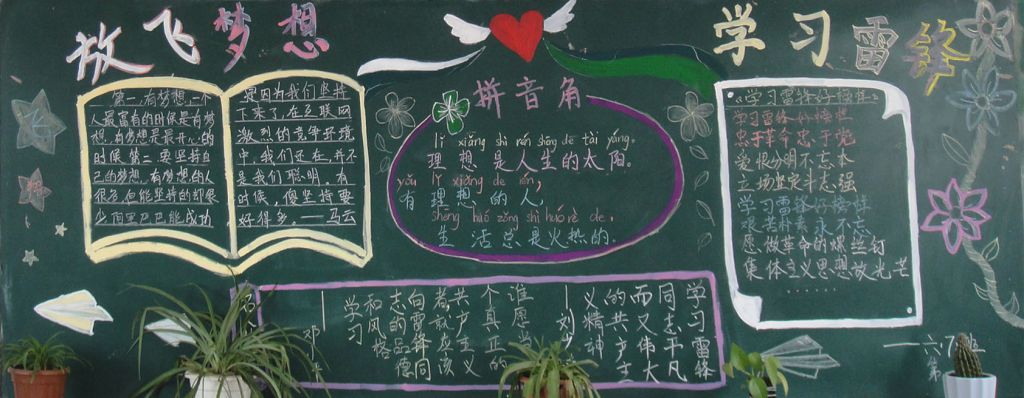 放飞梦想
第一,有梦想,一个
人最富有的时候是有梦
想,有梦想是最开心的
时候。第二要坚持自
己的梦想,有梦想的人
很多,但能坚持的却很
少,阿里巴巴能成功
是因为我们坚持
下来了,在互联网
激烈的竞争环境
中,我们还在,并不
是我们聪明。有
时候,傻坚持要
好得多。——马云
拼音角
lǐ xiǎng shì rén shēng de tài yáng。
理想是人生的太阳。
yǒu lǐ xiǎng de rén,
有理想的人,
shēng huó zǒng shì huǒ rè de。
生活总是火热的。
学习雷锋
《学习雷锋好榜样》
学习雷锋好榜样
忠于革命忠于党
爱恨分明不忘本
立场坚定斗志强
学习雷锋好榜样
艰苦朴素永不忘
愿做革命的螺丝钉
集体主义思想放光芒
......
学习雷锋
同志平凡
而又伟大
的共产主
义精神
谁愿当
个真正的
共产主义
者就应该
向雷锋同
志的品德
和风格
学习
——邓